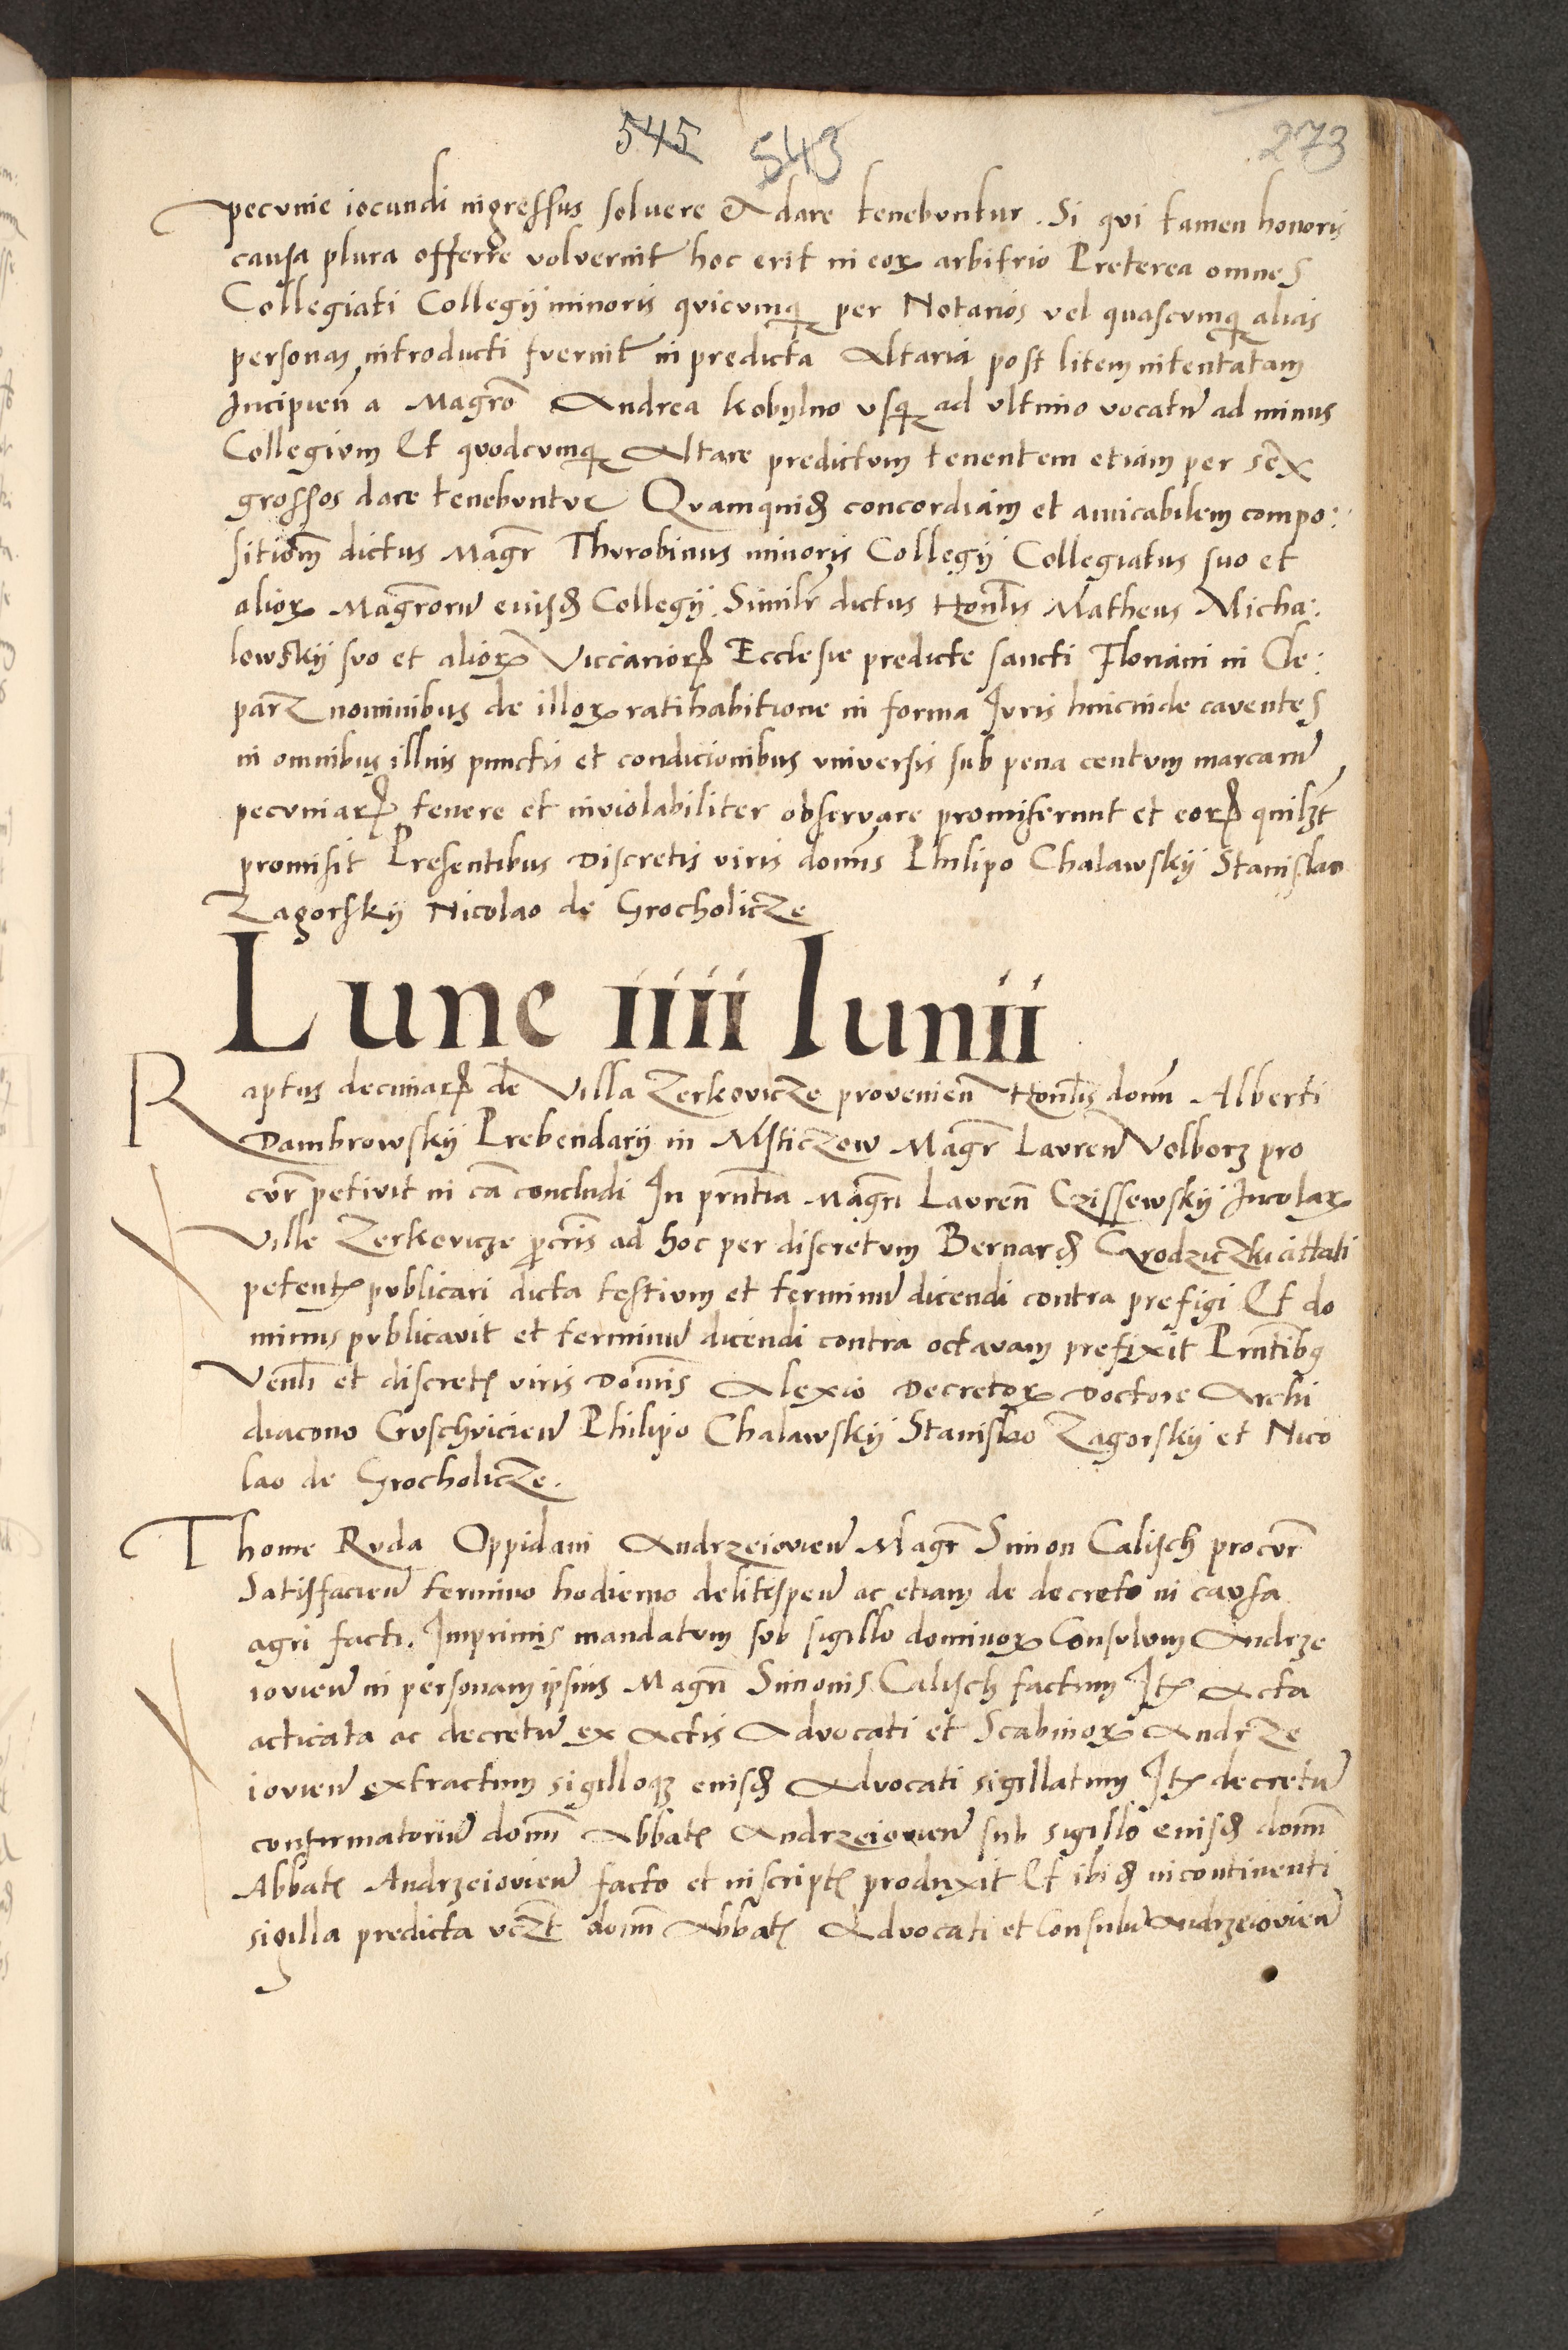 545 543 273
pecunie iocundi ingressus soluere & dare tenebuntur. Si qui tamen honoris
causa plura offerre voluerint hoc erit in eorꝝ arbitrio Preterea omnes
Collegiati Collegij minoris quicumqꝫ per Notarios vel quascumqꝫ alias
personas introducti fuerint in predicta Altaria post litem intentatam
Incipieñ a Magr̃o Andrea Kobylno vsqꝫ ad vltimo vocatũ ad minus
Collegium Et quodcumqꝫ Altare predictum tenentem etiam per sex
grossos dare tenebuntur Quamquid̃ concordiam et amicabilem compo:
sitiom̃ dictus Magr̃ Thurobinus minoris Collegij Collegiatus suo et
aliorꝝ Magr̃orũ eiusd̃ Collegij. Similr̃ dictus Honl̃is Matheus Micha:
lowskij suo et aliorꝝ Viccariorꝝ Ecclesie predicte sancti Floriani in Cle:
parz nominibus de illorꝝ ratihabitione in forma Iuris hincinde cauentes
in omnibus illius punctis et condicionibus vniuersis sub pena centum marcarũ
pecuniarꝝ tenere et inuiolabiliter obseruare promiserunt et eorꝝ quilꝫt
promisit Presentibus Discretis viris domĩs Philipo Chalawskij Stanislao
Zagorskij Nicolao de Grocholicze
Lune iiii Iunii
Raptus decimarꝝ de Villa Zerkovicze provenieñ Honl̃is domĩ Alberti
Dambrowskij Prebendarij in Msticzow Magr̃ Laureñ Volborz pro
cur̃ petivit in cã concludi In pr̃ntia Magr̃i Laureñ Czissewskij Incolarꝝ
Ville Zerkevicze p̃cr̃is ad hoc per discretum Bernard̃ Grodziczki cittati
petentꝭ publicari dicta testium et terminũ dicendi contra prefigi Et do
minus publicavit et terminũ dicendi contra octavam prefixit Pr̃ntibꝰ
Venl̃i et discretꝭ viris Domĩs Alexio Decretorꝝ Doctore Archi
diacono Cruschvicieñ Philipo Chalawskij Stanislao Zagorskij et Nico
lao de Grocholicze.
Thome Ruda Oppidani Andrzeiovieñ Magr̃ Simon Calisch procur̃
Satisfacieñ termino hodierno delitispeñ ac etiam de decreto in causa
agri facti. Imprimis mandatum sub sigillo dominorꝝ Consulum Andrze
iovieñ in personam ipsius Magr̃i Simonis Calisch factum Itꝭ Acta
acticata ac decretũ ex Actis Advocati et Scabinorꝝ Andrze
iovieñ extractum sigilloqꝫ eiusd̃ Advocati sigillatum Itꝭ decretũ
confirmatoriũ domĩ Abbatꝭ Andrzeiovieñ sub sigillo eiusd̃ domĩ
Abbatꝭ Andrzeiovieñ facto et in scriptꝭ produxit Et ibid̃ incontinenti
sigilla predicta vczt domĩ Abbatꝭ Advocati et Consulũ Andrzeiovieñ